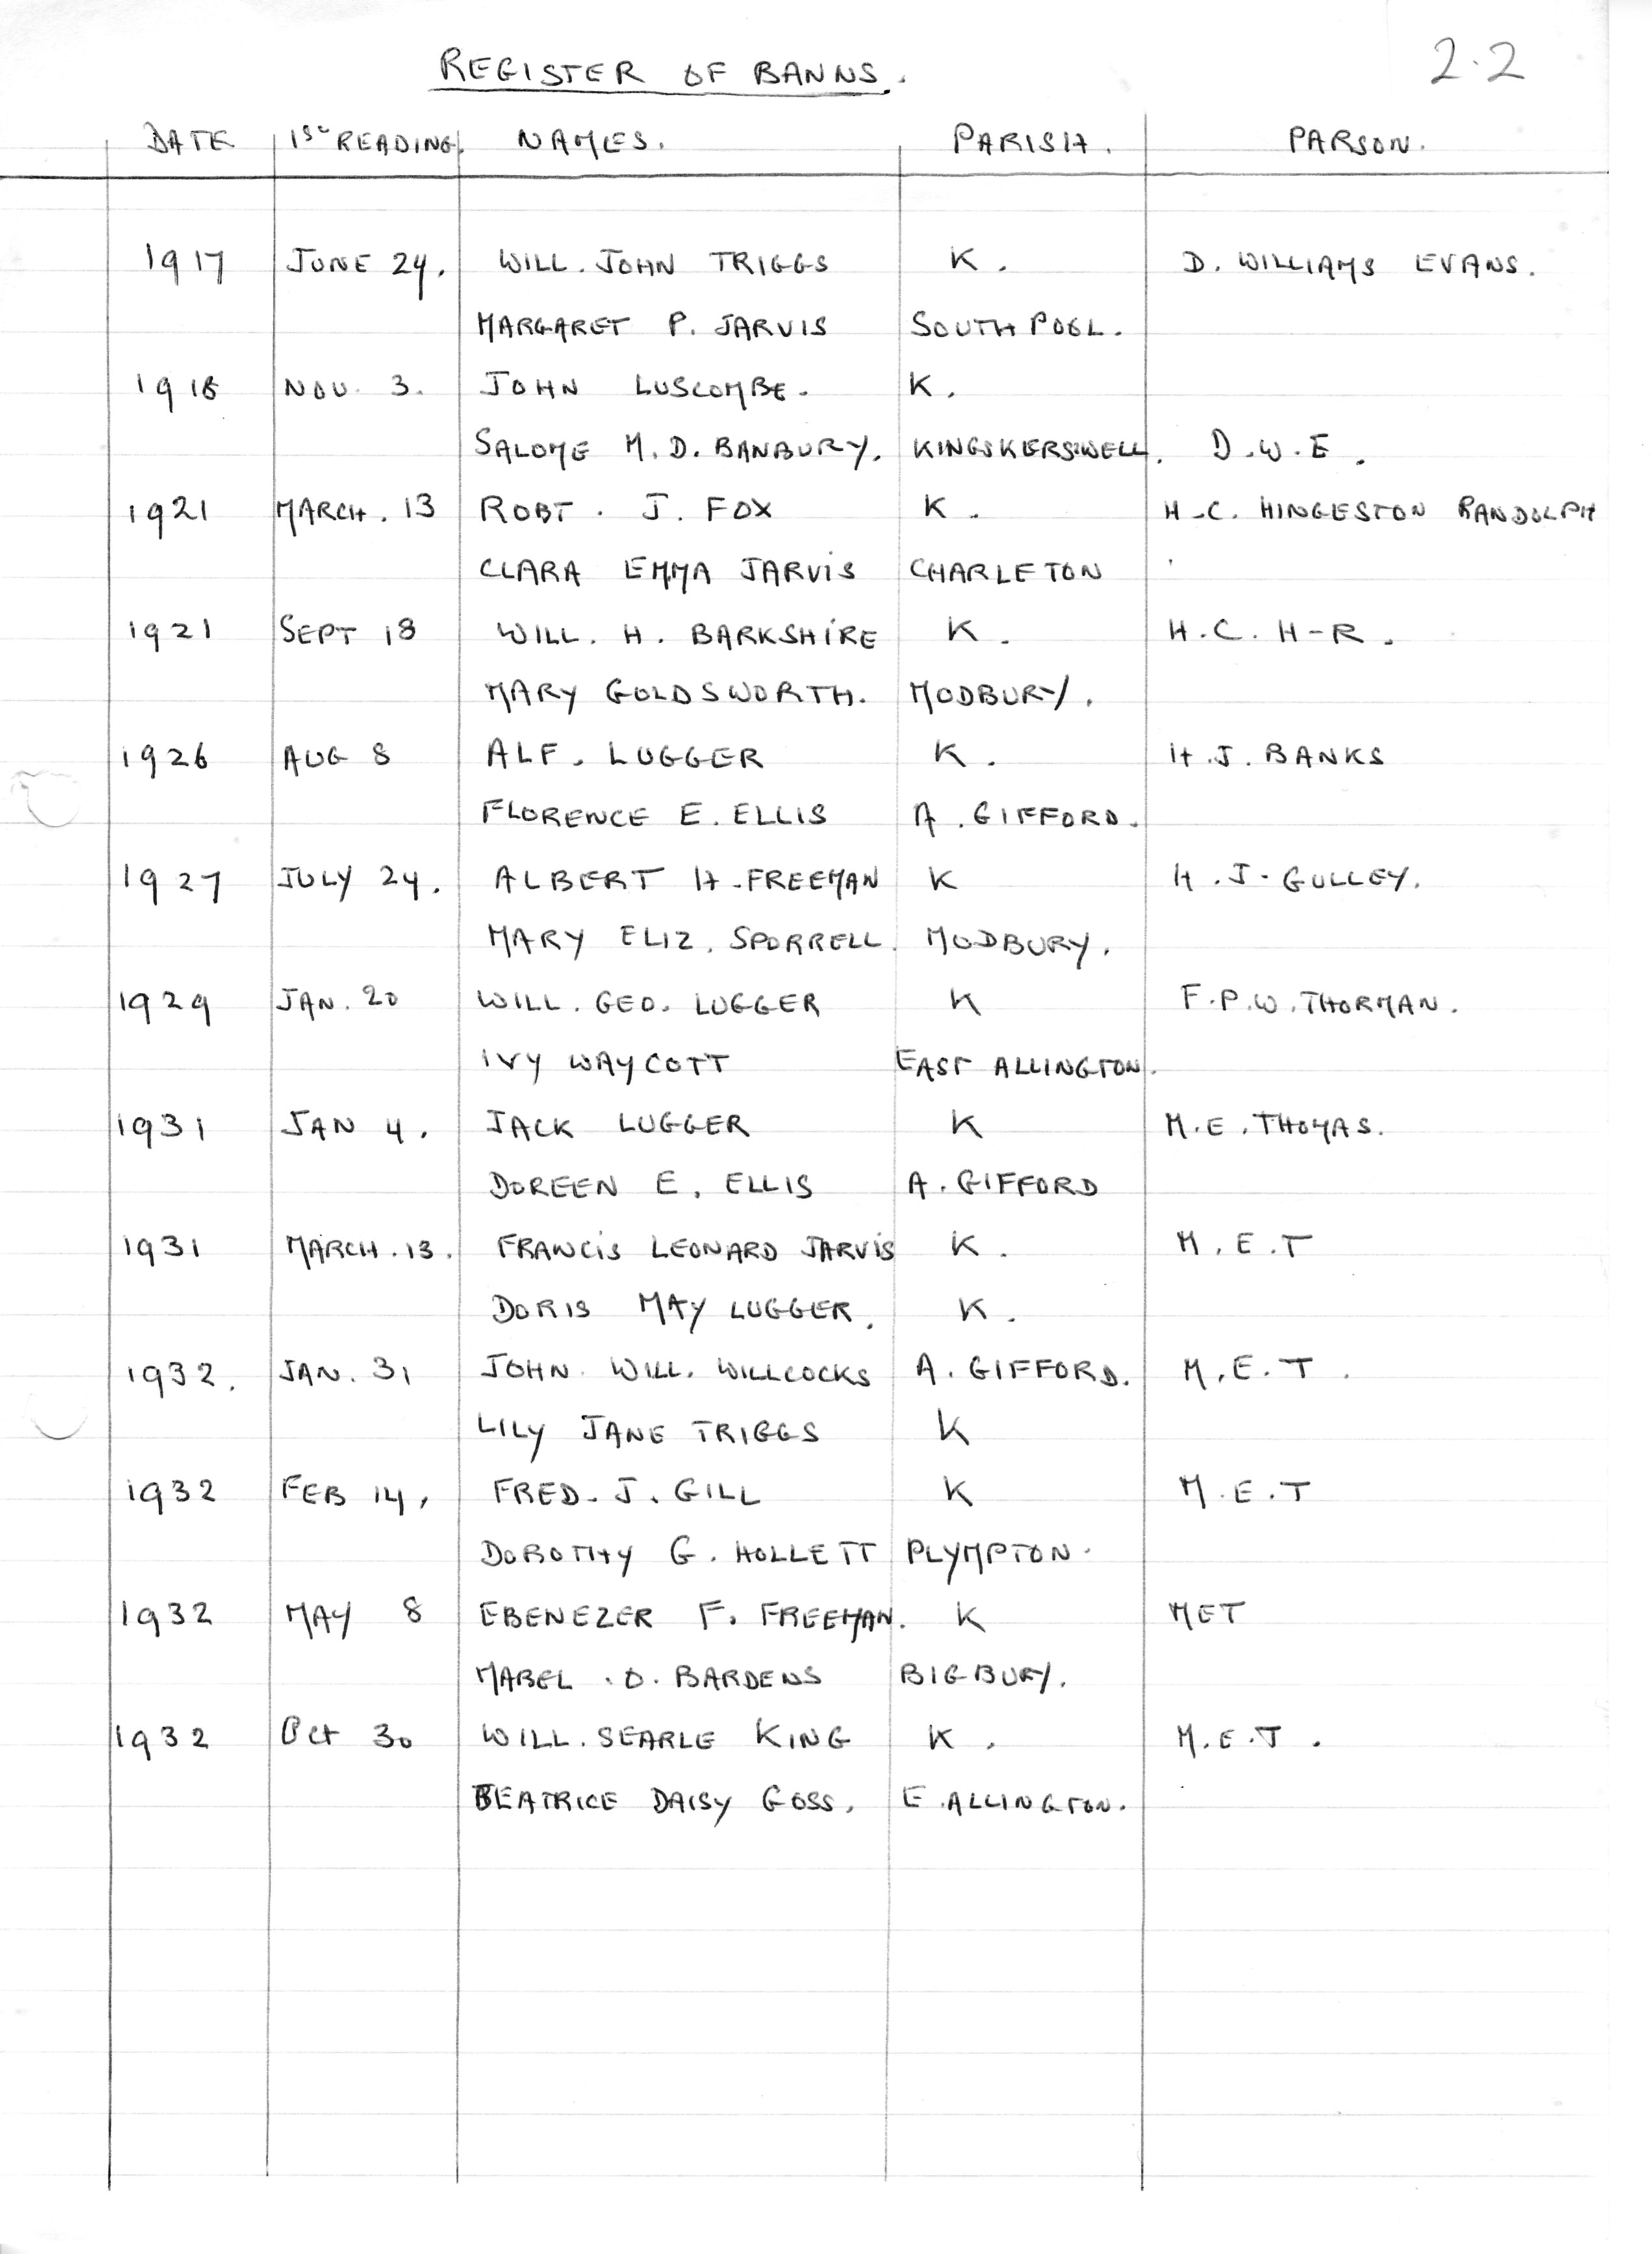 2.2
REGISTER OF BANNS.
DATE 1ST READING. NAMES. PARISH. PARSON.
1917 JUNE 24. WILL. JOHN TRIGGS K. D. WILLIAMS EVANS.
MARGARET P. JARVIS SOUTH POOL.
1918 NOV. 3. JOHN LUSCOMBE. K.
SALOME M. D. BANBURY. KINGSKERSWELL. D.W.E.
1921 MARCH. 13 ROBT. J. FOX K. H.C. HINGESTON RANDOLPH
CLARA EMMA JARVIS CHARLETON
1921 SEPT 18 WILL. H. BARKSHIRE K. H.C. H-R.
MARY GOLDSWORTH. MODBURY.
1926 AUG 8 ALF. LUGGER K. H.J. BANKS
FLORENCE E. ELLIS A. GIFFORD.
1927 JULY 24. ALBERT H. FREEMAN K H.J. GULLEY.
MARY ELIZ. SPORRELL. MODBURY.
1929 JAN. 20 WILL. GEO. LUGGER K F.P.W. THORMAN.
IVY WAYCOTT EAST ALLINGTON.
1931 JAN 4. JACK LUGGER K M.E. THOMAS.
DOREEN E. ELLIS A. GIFFORD
1931 MARCH. 13. FRANCIS LEONARD JARVIS K. M.E.T
DORIS MAY LUGGER. K.
1932. JAN. 31 JOHN. WILL. WILLCOCKS A. GIFFORD. M.E.T.
LILY JANE TRIGGS K
1932 FEB 14, FRED. J. GILL K M.E.T
DOROTHY G. HOLLETT PLYMPTON.
1932 MAY 8 EBENEZER F. FREEMAN. K MET
MABEL. O. BARDENS BIGBURY.
1932 Oct 30 WILL. SEARLE KING K. M.E.T.
BEATRICE DAISY GOSS. E. ALLINGTON.